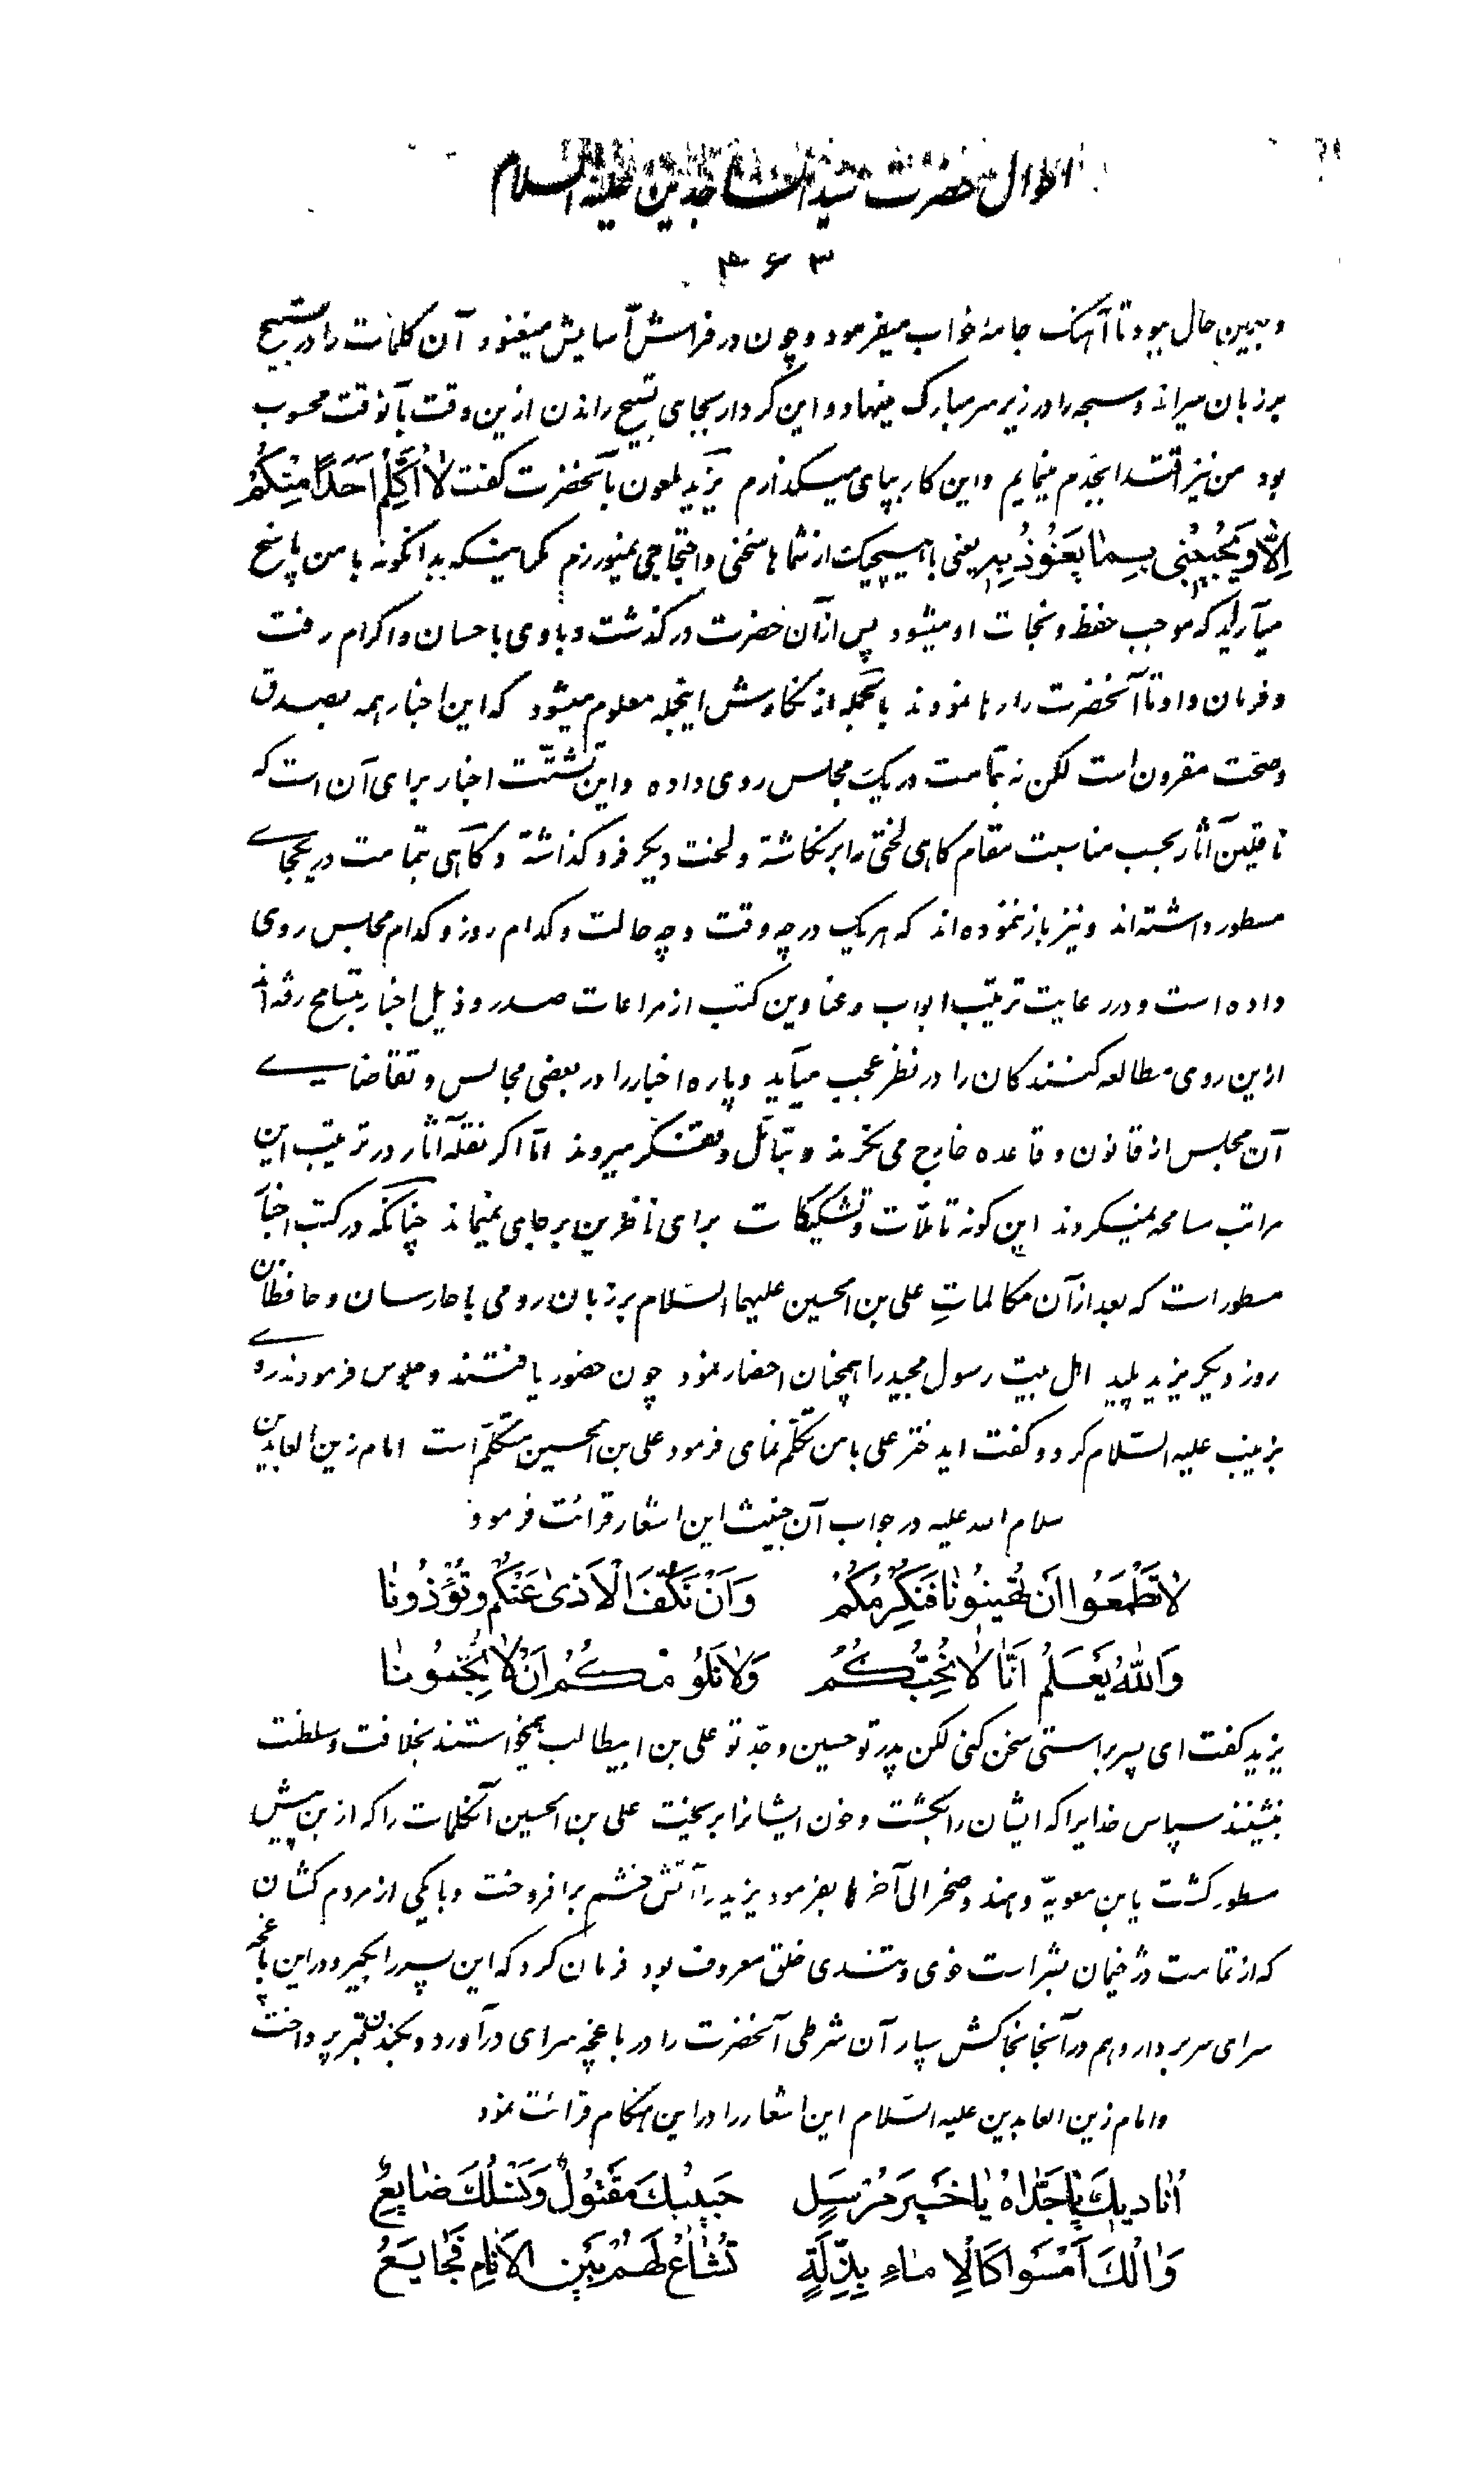 احوال حضرت سید الساجدین علیه السلام
۴۶۳
و بدین حال ببود تا آهنک جامه خواب میفرمود و چون در فراش آسایش میغنود آن کلمات را در تسبیح
بر زبان میراند و سبحه را در زیر سر مبارک مینهاد و این کردار بجای تسبیح راندن ازین وقت بآنوقت محسوب
بود من نیز اقتدا بجدم مینمایم و این کار بپای میکذارم یزید ملعون بآنحضرت کفت لا اُکَلِّمُ اَحَدًا مِنْکُمْ
اِلّا وَیُجیبُنی بِما یَعُوذُ بِهِ یعنی با هیچیک از شماها سخنی و احتجاجی نمیورزم مکر اینکه بدانکونه با من پاسخ
میآرید که موجب حفظ و نجات او میشود پس از آن حضرت در کذشت و با وی باحسان و اکرام رفت
و فرمان داد تا آنحضرت را رها نمودند بالجمله از نکارش اینجمله معلوم میشود که این اخبار همه بصدق
و صحت مقرون است لکن نه بتمامت در یک مجلس روی داده و این تشتّت اخبار برای آن است که
ناقلین آثار بحسب مناسبت مقام کاهی لختی را بر نکاشته و لخت دیکر فرو کذاشته و کاهی بتمامت در یکجای
مسطور داشته اند و نیز باز ننموده اند که هر یک در چه وقت و چه حالت و کدام روز و کدام مجلس روی
داده است و در رعایت ترتیب ابواب و عناوین کتب از مراعات صدر و ذیل اخبار بتسامح رفته اند
ازین روی مطالعه کنندکان را در نظر عجب میآید و پاره اخبار را در بعضی مجالس و تقاضای
آن مجلس از قانون و قاعده خارج می نکرند و بتأمّل و تفکّر میروند امّا اکر نقله آثار در ترتیب این
مراتب مسامحه نمیکردند این کونه تامّلات و تشکیکات برای ناظرین بر جای نمیماند چنانکه در کتب اخبار
مسطور است که بعد از آن مکالماتِ علی بن الحسین علیهما السّلام بر زبان رومی با حارسان و حافظان
روز دیکر یزید پلید اهل بیت رسول مجید را همچنان احضار نمود چون حضور یافتند و جلوس فرمودند روی
بزینب علیه السّلام کرد و کفت ایدختر علی با من تکلّم نمای فرمود علی بن الحسین متکلّم است امام زین العابدین
سلام الله علیه در جواب آن خبیث این اشعار قرائت فرمود
لا تَطْمَعُوا اَن تُهینُونا فَنُکْرِمَکُمْ وَ اَنْ نَکُفَّ الْاَذیٰ عَنْکُمْ وَ تُؤْذُونا
وَاللهُ یَعْلَمُ اَنّا لا نُحِبُّکُمْ وَلا نَلُومُکُمْ اَنْ لا تُحِبُّونا
یزید کفت ای پسر براستی سخن کنی لکن پدر تو حسین و جدّ تو علی بن ابیطالب همیخواستند بخلافت و سلطنت
بنشینند سپاس خدایرا که ایشان را بکشت و خون ایشانرا بریخت علی بن الحسین آنکلمات را که ازین پیش
مسطور کشت یا بن معویة و هند و صخر الی آخرها بفرمود یزید را آتش خشم برافروخت و با یکی از مردم کشان
که از تمامت دژخیمان بشراست خوی و تندی خلق معروف بود فرمان کرد که این پسر را بکیر و در این باغچه
سرای سر بردار و هم در آنجا بخاکش سپار آن شرطی آنحضرت را در باغچه سرای در آورد و بکندن قبر پرداخت
و امام زین العابدین علیه السّلام این اشعار را در این هنکام قرائت نمود
اُنادیكَ یا جَدّاهُ یا خَیرَ مُرْسَلٍ حَبیبُكَ مَقْتُولٌ وَنَسْلُكَ ضایِعٌ
وَ اٰلُكَ اَمْسَوا کَالْاِماءِ بِذِلَّةٍ تُشاعُ لَهُمْ بَیْنَ الاَنامِ فَجایِعُ